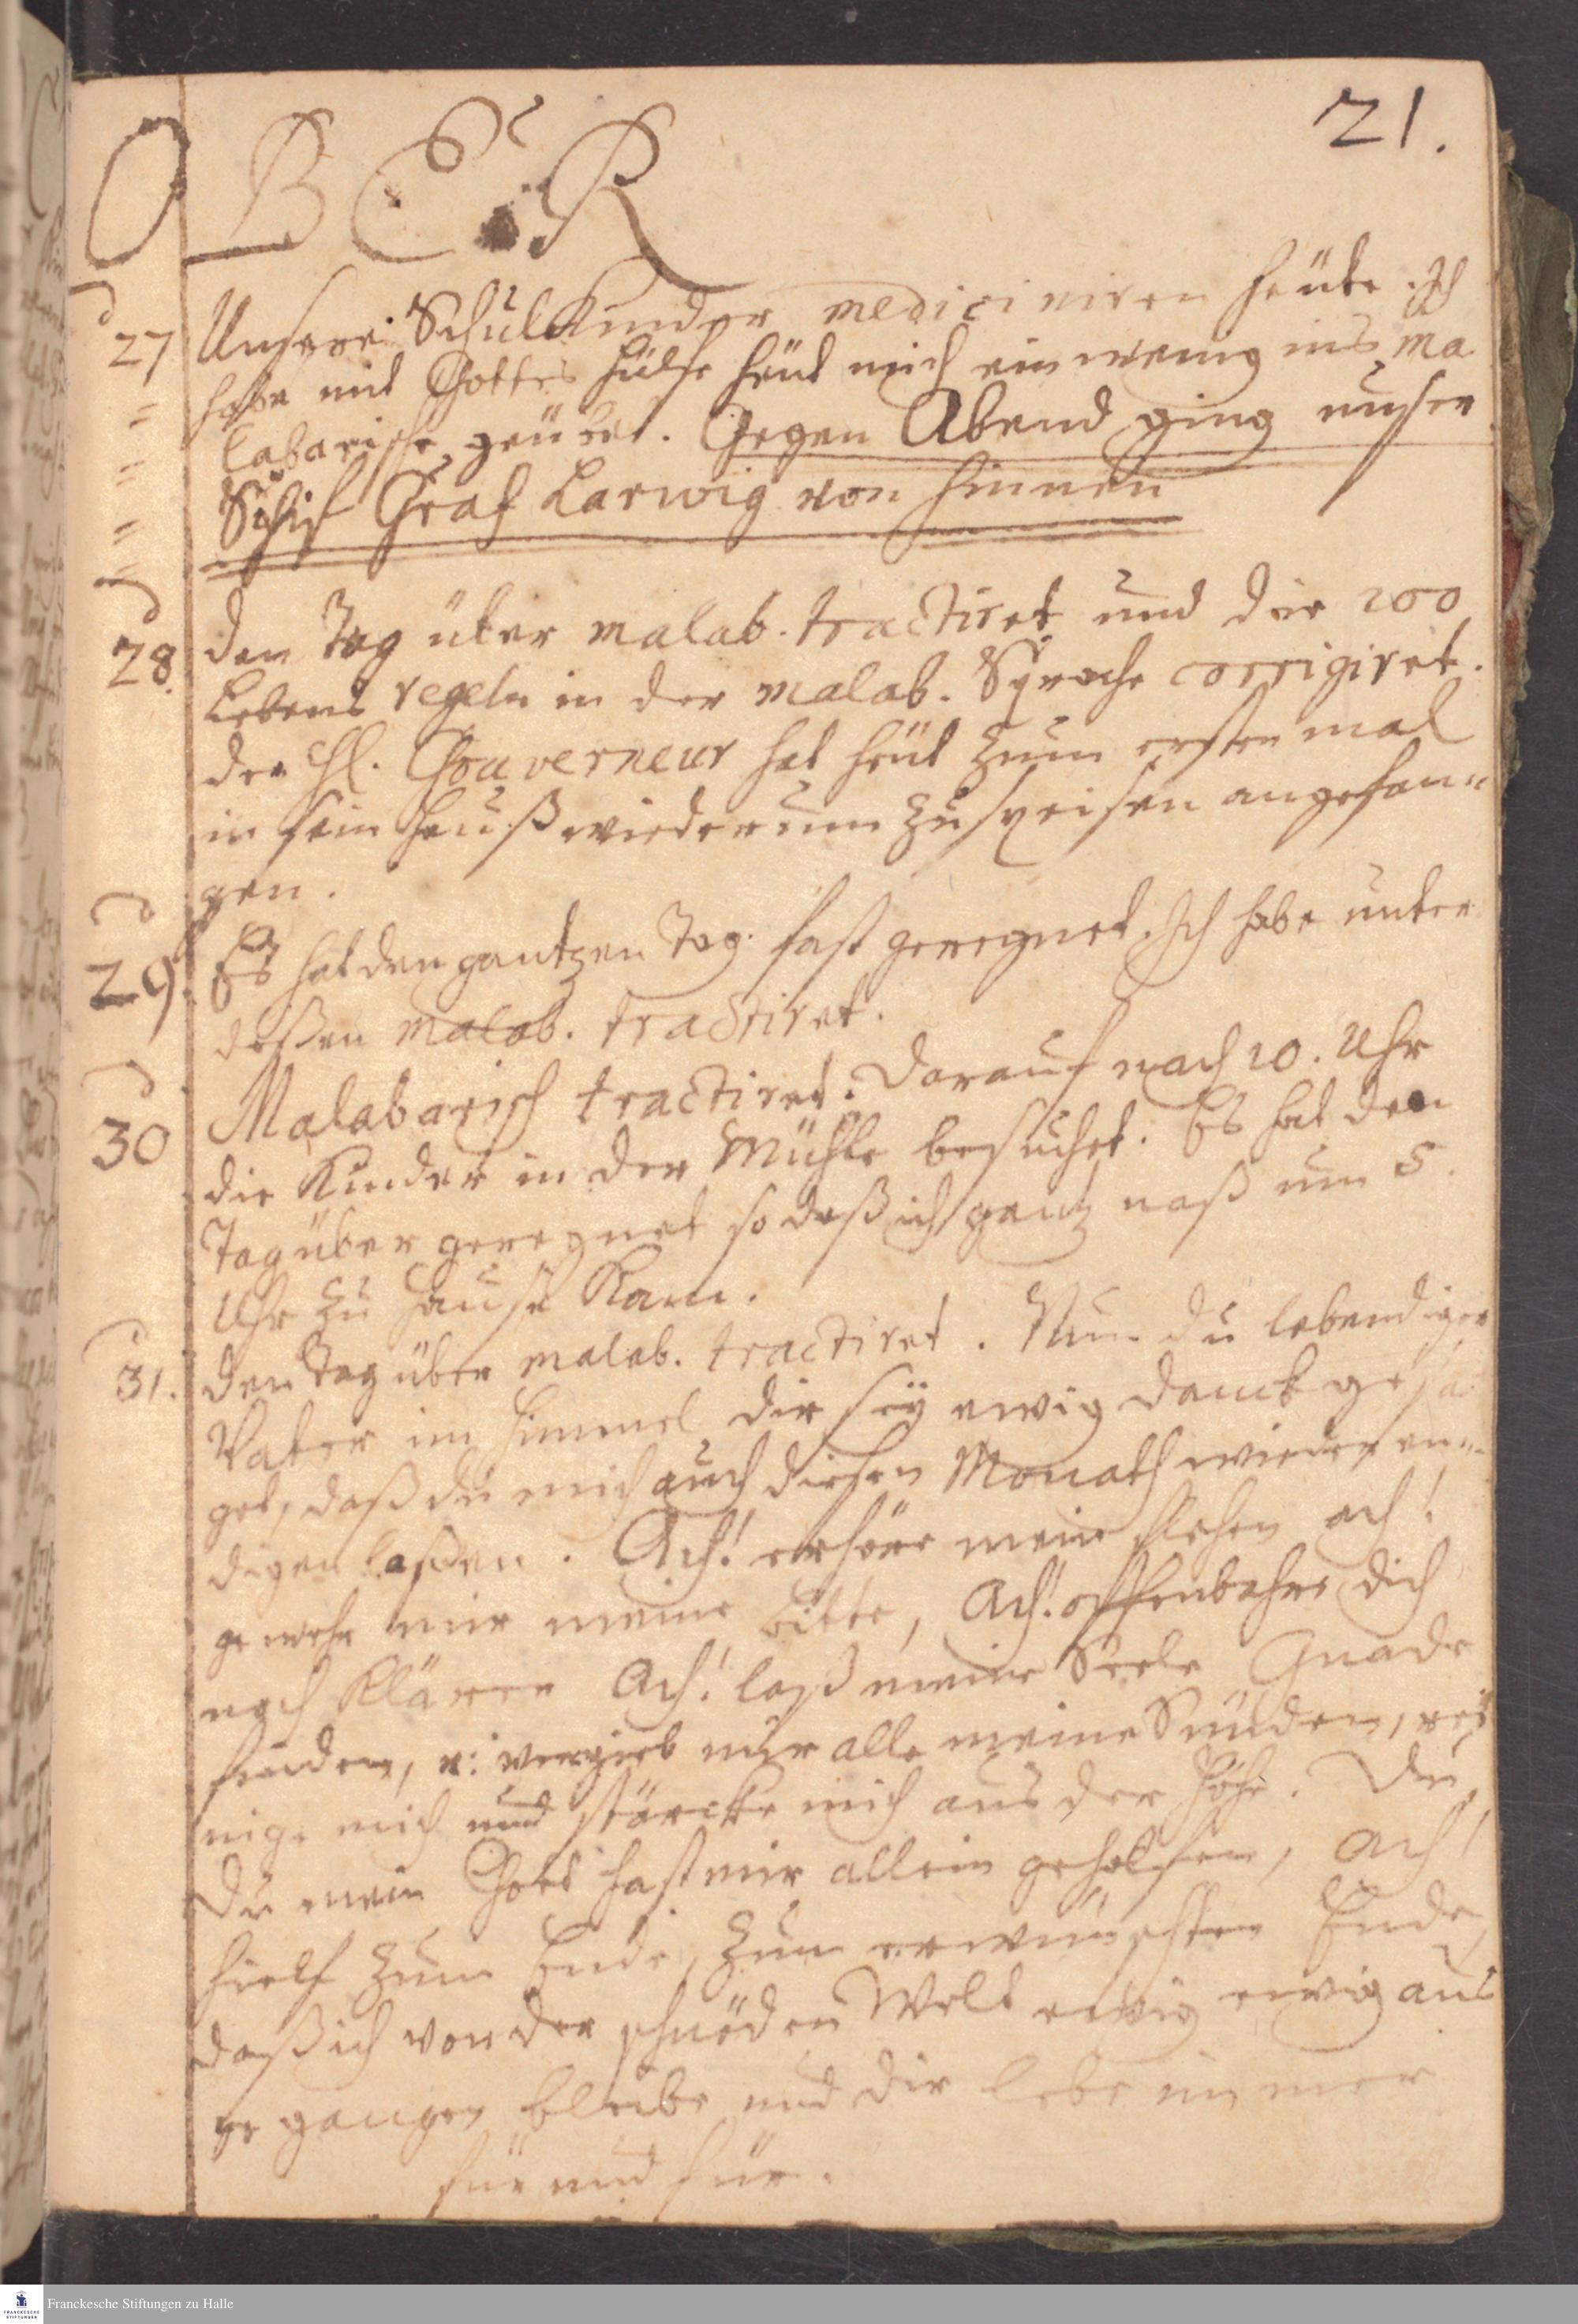 21.
OBER
27 Unsere Schulkinder mediciniren heüte. Ich
habe mit Gottes hülfe heüt mich ein wenig ins Ma
labarische geübet. Gegen Abend ging unser
Schif Graf Larwig von hinnen
28. den Tag über malab. tractiret und die 100
Lebens regeln in der malab. Sprache corrigiret.
der Hl. Gouverneur hat heüt zum ersten mal
in sein Hauß wiederum zu speisen angefan=
gen.
29. Es hat den gantzen Tag fast geregnet. Ich habe unter
deßen malab. tractiret.
30 Malabarisch tractiret. Darauf nach 10. Uhr
die Kinder in der Mühle besuchet. Es hat den
Tag über geregnet so daß ich gantz naß um 5.
Uhr zu Hause kam.
31. den Tag über malab. tractiret. Nun du lebendiger
Vater im Himmel dir seÿ ewig danck gesa=
get, daß du mich auch diesen Monath wieder en=
digen laßen. Ach! erhöre mein flehen ach!
gewehr mir meine bitte, Ach! offenbahre dich
noch klärer Ach! laß meine Seele Gnade
finden, u: vergieb mir alle meine Sünden, rei
nige mich und stärcke mich aus der Höhe. Du,
Du mein Gott hast mir allein geholfen, Ach!
hielf zum Ende, zum erwünschten Ende,
daß ich von der schnöden Welt ewig ewig aus
ge gangen bleibe und dir lebe immer
für und für.
Franckesche Stiftungen zu Halle